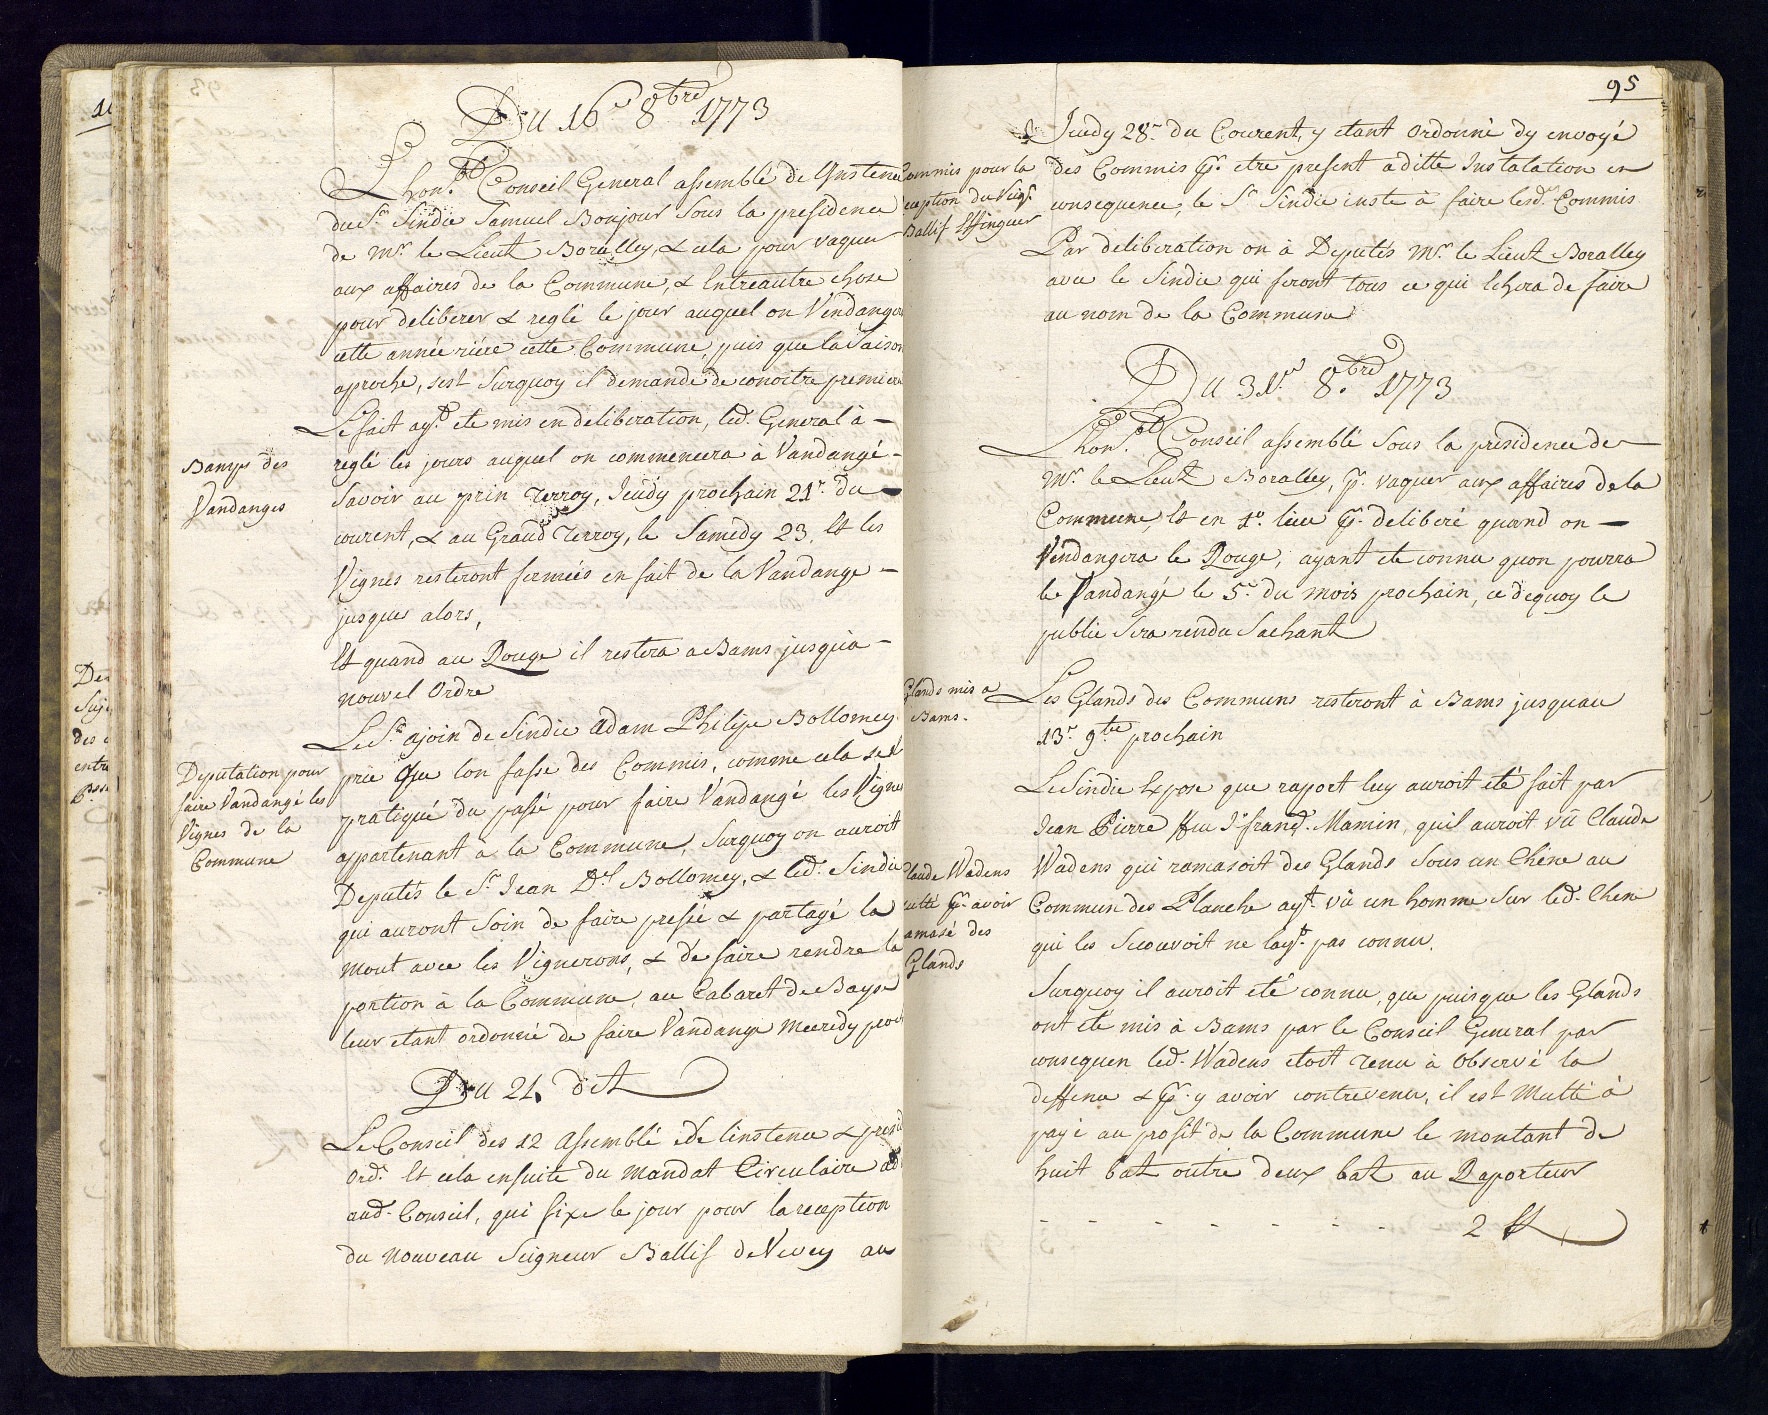 Du 16e 8bre 1773
Lhon.ble Conseil General assemblé de Linstence
du Sr Sindic Samuel Bonjour Sous la presidence
de Mr. le Lieut Boralley, & cela pour vaquer
aux affaires de la Commune, & Entreautre chose
pour deliberer & reglé le jour auquel on Vendangera
cette année riére cette Commune, puis que la Saison
aproche, sest Surquoy il demande de conoitre premiere
Le fait ayt. ete mis en deliberation, led. General à
reglé les jours auquel on commencera à Vandangé
Savoir au prin Terroy, Jeudy prochain 21e. du
courent, & au Grand Terroy, le Samedy 23. Et les
Vignes resteront fermées en fait de la Vandange
jusques alors,
Et quand au Rouge il restera a Bams jusqu'a
nouvel Ordre
Le Sr. ajoin de Sindic Adam Philipe Bollomey
prie Que lon fasse des Commis, comme cela sest
pratiqué du passé pour faire Vandangé les Vignes
appartenant à la Commune, Surquoy on auroit
Deputés le Sr. Jean Dl. Bollomey, & led. Sindic
qui auront Soin de faire pressé & partagé la
mout avec les Vignerons, & de faire rendre la
portion à la Commune, au Cabaret de Baye
leur etant ordonné de faire Vandangé Mecredy proch
Du 21. dit
Le Conseil des 12 Assemblé de linstence & presid
Ord. Et cela ensuite du mandat Circulaire ad
aud. Conseil, qui fixe le jour pour la reception
du nouveau Seigneur Ballif de Vevey au
Bamps des
Vandanges
Deputation pour
faire Vandangé les
Vignes de la
Commune
95
Jeudy 28e. du Courent, y etant Ordonné dy envoyé
des Commis pr. etre present a ditte Instalation en
consequence, le Sr Sindic inste à faire lesd. Commis
Par deliberation on à Deputés Mr. le Lieut Boralley
avec le Sindic qui feront tous ce qui Echera de faire
au nom de la Commune
Du 31e 8.bre 1773
Lhon.ble Conseil assemblé Sous la presidence de
Mr. le Lieut Boralley, pr. vaquer aux affaires de la
Commune, Et en 1o. lieu pr. deliberé quand on
Vendangera le Rouge, ayant eté connu quon pourra
le Vandangé le 5e. du mois prochain, ce dequoy le
public Sera rendu Sachant
Les Glands des Communs resteront à Bams jusquau
13e 9bre prochain
Le Sindic Expose que raport luy auroit eté fait par
Jean Pierre ffeu Je. franc. Mamin, quil auroit vû Claude
Wadens qui ramasoit des Glands Sous un Chêne au
Commun des Planche ayt. vû un homme Sur led. Chene
qui les Secouvoit ne layt. pas connu.
Surquoy il auroit eté connu, que puisque les Glands
ont eté mis à Bams par le Conseil General par
consequen led. Wadens etoit Tenu à Observé la
deffence & pr. y avoir contrevenu, il est Multé à
payé au profit de la Commune le montant de
huit batz outre deux batz au Raporteur
- - - - - - - 2 ff
Commis pour la
reception du Seigr.
Ballif Effinguer
Glands mis a
Bams.
Claude Wadens
multé pr. avoir
ramasé des
Glands